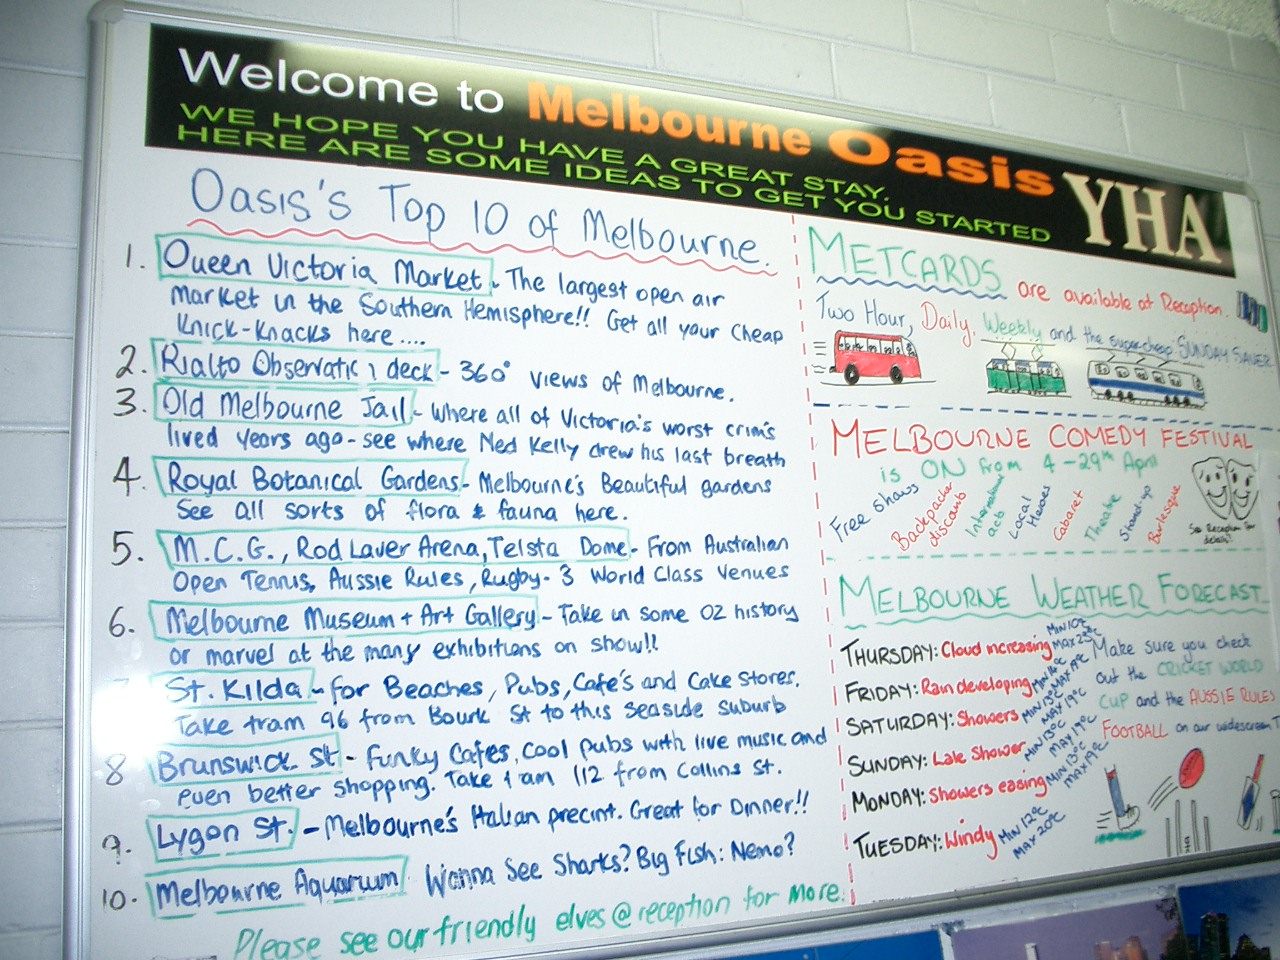 Welcome to Melbourne Oasis YHA
WE HOPE YOU HAVE A GREAT STAY.
HERE ARE SOME IDEAS TO GET YOU STARTED
Oasis's Top 10 of Melbourne.
1. Queen Victoria Market - The largest open air
market in the Southern Hemisphere!! Get all your cheap
Knick-Knacks here ....
2. Rialto Observatio deck - 360° views of Melbourne.
3. Old Melbourne Jail - Where all of Victoria's worst crim's
lived years ago - see where Ned Kelly drew his last breath
4. Royal Botanical Gardens - Melbourne's Beautiful gardens
See all sorts of flora & fauna here.
5. M.C.G., Rod Laver Arena, Telsta Dome - From Australian
Open Tennis, Aussie Rules, Rugby - 3 World Class Venues
6. Melbourne Museum + Art Gallery - Take in some OZ history
or marvel at the many exhibitions on show!!
St. Kilda - for Beaches, Pubs, Cafe's and Cake Stores.
Take tram 96 from Bourk St to this seaside suburb
8 Brunswick St - Funky Cafes, cool pubs with live music and
even better shopping. Take tam 112 from Collins St.
9. Lygon St. - Melbourne's Italian precint. Great for Dinner!!
10. Melbourne Aquarium Wanna See Sharks? Big Fish: Nemo?
Please see our friendly elves @ reception for more.
METCARDS are available at Reception.
Two Hour, Daily, Weekly and the super cheap SUNDAY SAVER
MELBOURNE COMEDY FESTIVAL
is ON from 4 - 29th April
Free shows
Backpacker discounts
International acts
Local Heroes
Cabaret
Theatre
Stand-up
Burlesque
See Reception for details!
MELBOURNE WEATHER FORECAST
THURSDAY: Cloud increasing MIN 10°C MAX 23°C
FRIDAY: Rain developing MIN 14°C MAX 19°C
SATURDAY: Showers MIN 13°C MAX 19°C
SUNDAY: Late Shower MIN 13°C MAX 19°C
MONDAY: Showers easing MIN 13°C MAX 19°C
TUESDAY: Windy MIN 12°C MAX 20°C
Make sure you check
out the CRICKET WORLD
CUP and the AUSSIE RULES
FOOTBALL on our widescreen T